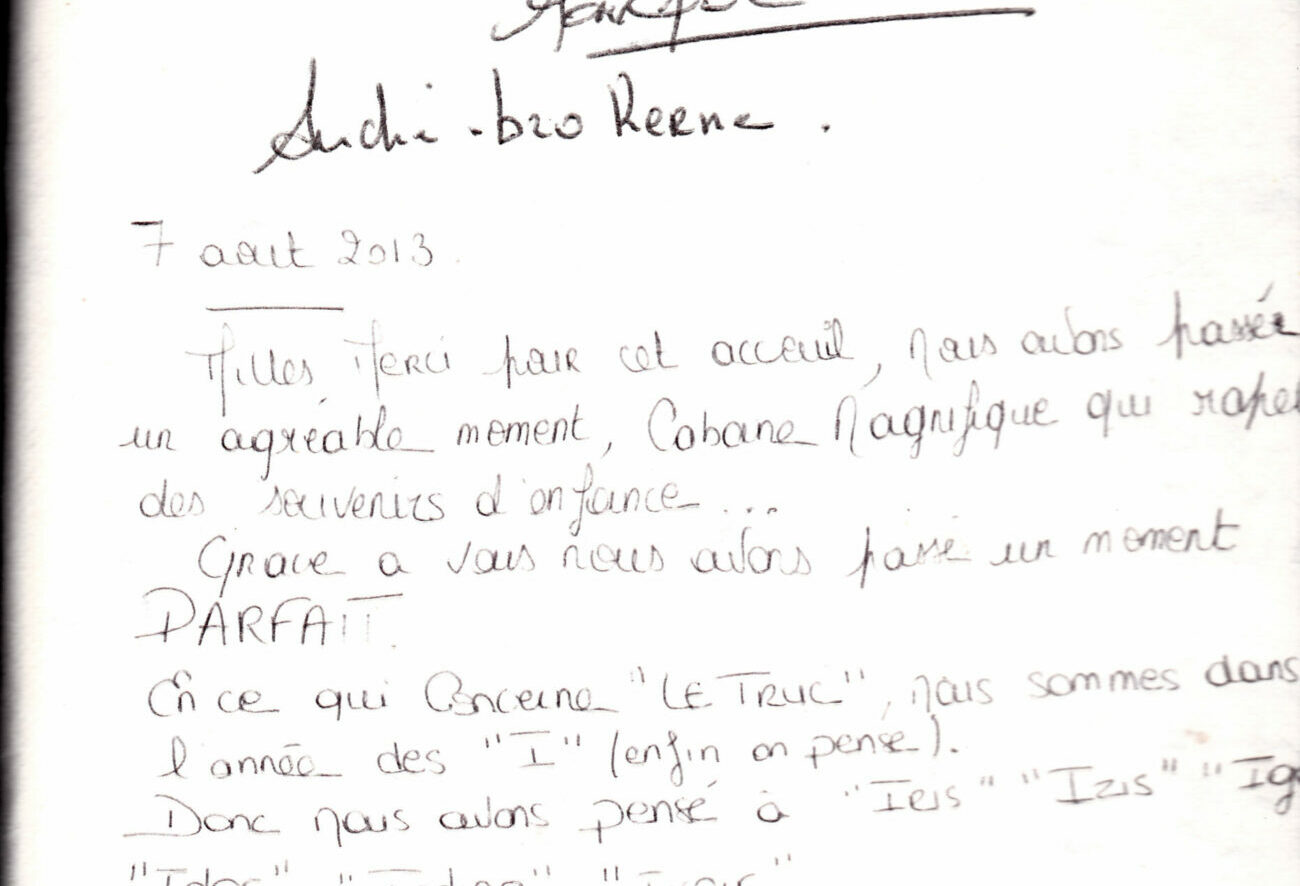 7 aout 2013.
Milles Merci pour cet acceuil, Nous avons passée
un agréable moment, Cabane Magnifique qui rapel
des souvenirs d'enfance...
Grace a vous nous avons passé un moment
PARFAIT.
En ce qui Concerne "LE TRUC", nous sommes dans
l'année des "I" (enfin on pense).
Donc nous avons pensé à "Iris" "Izis" "Ig